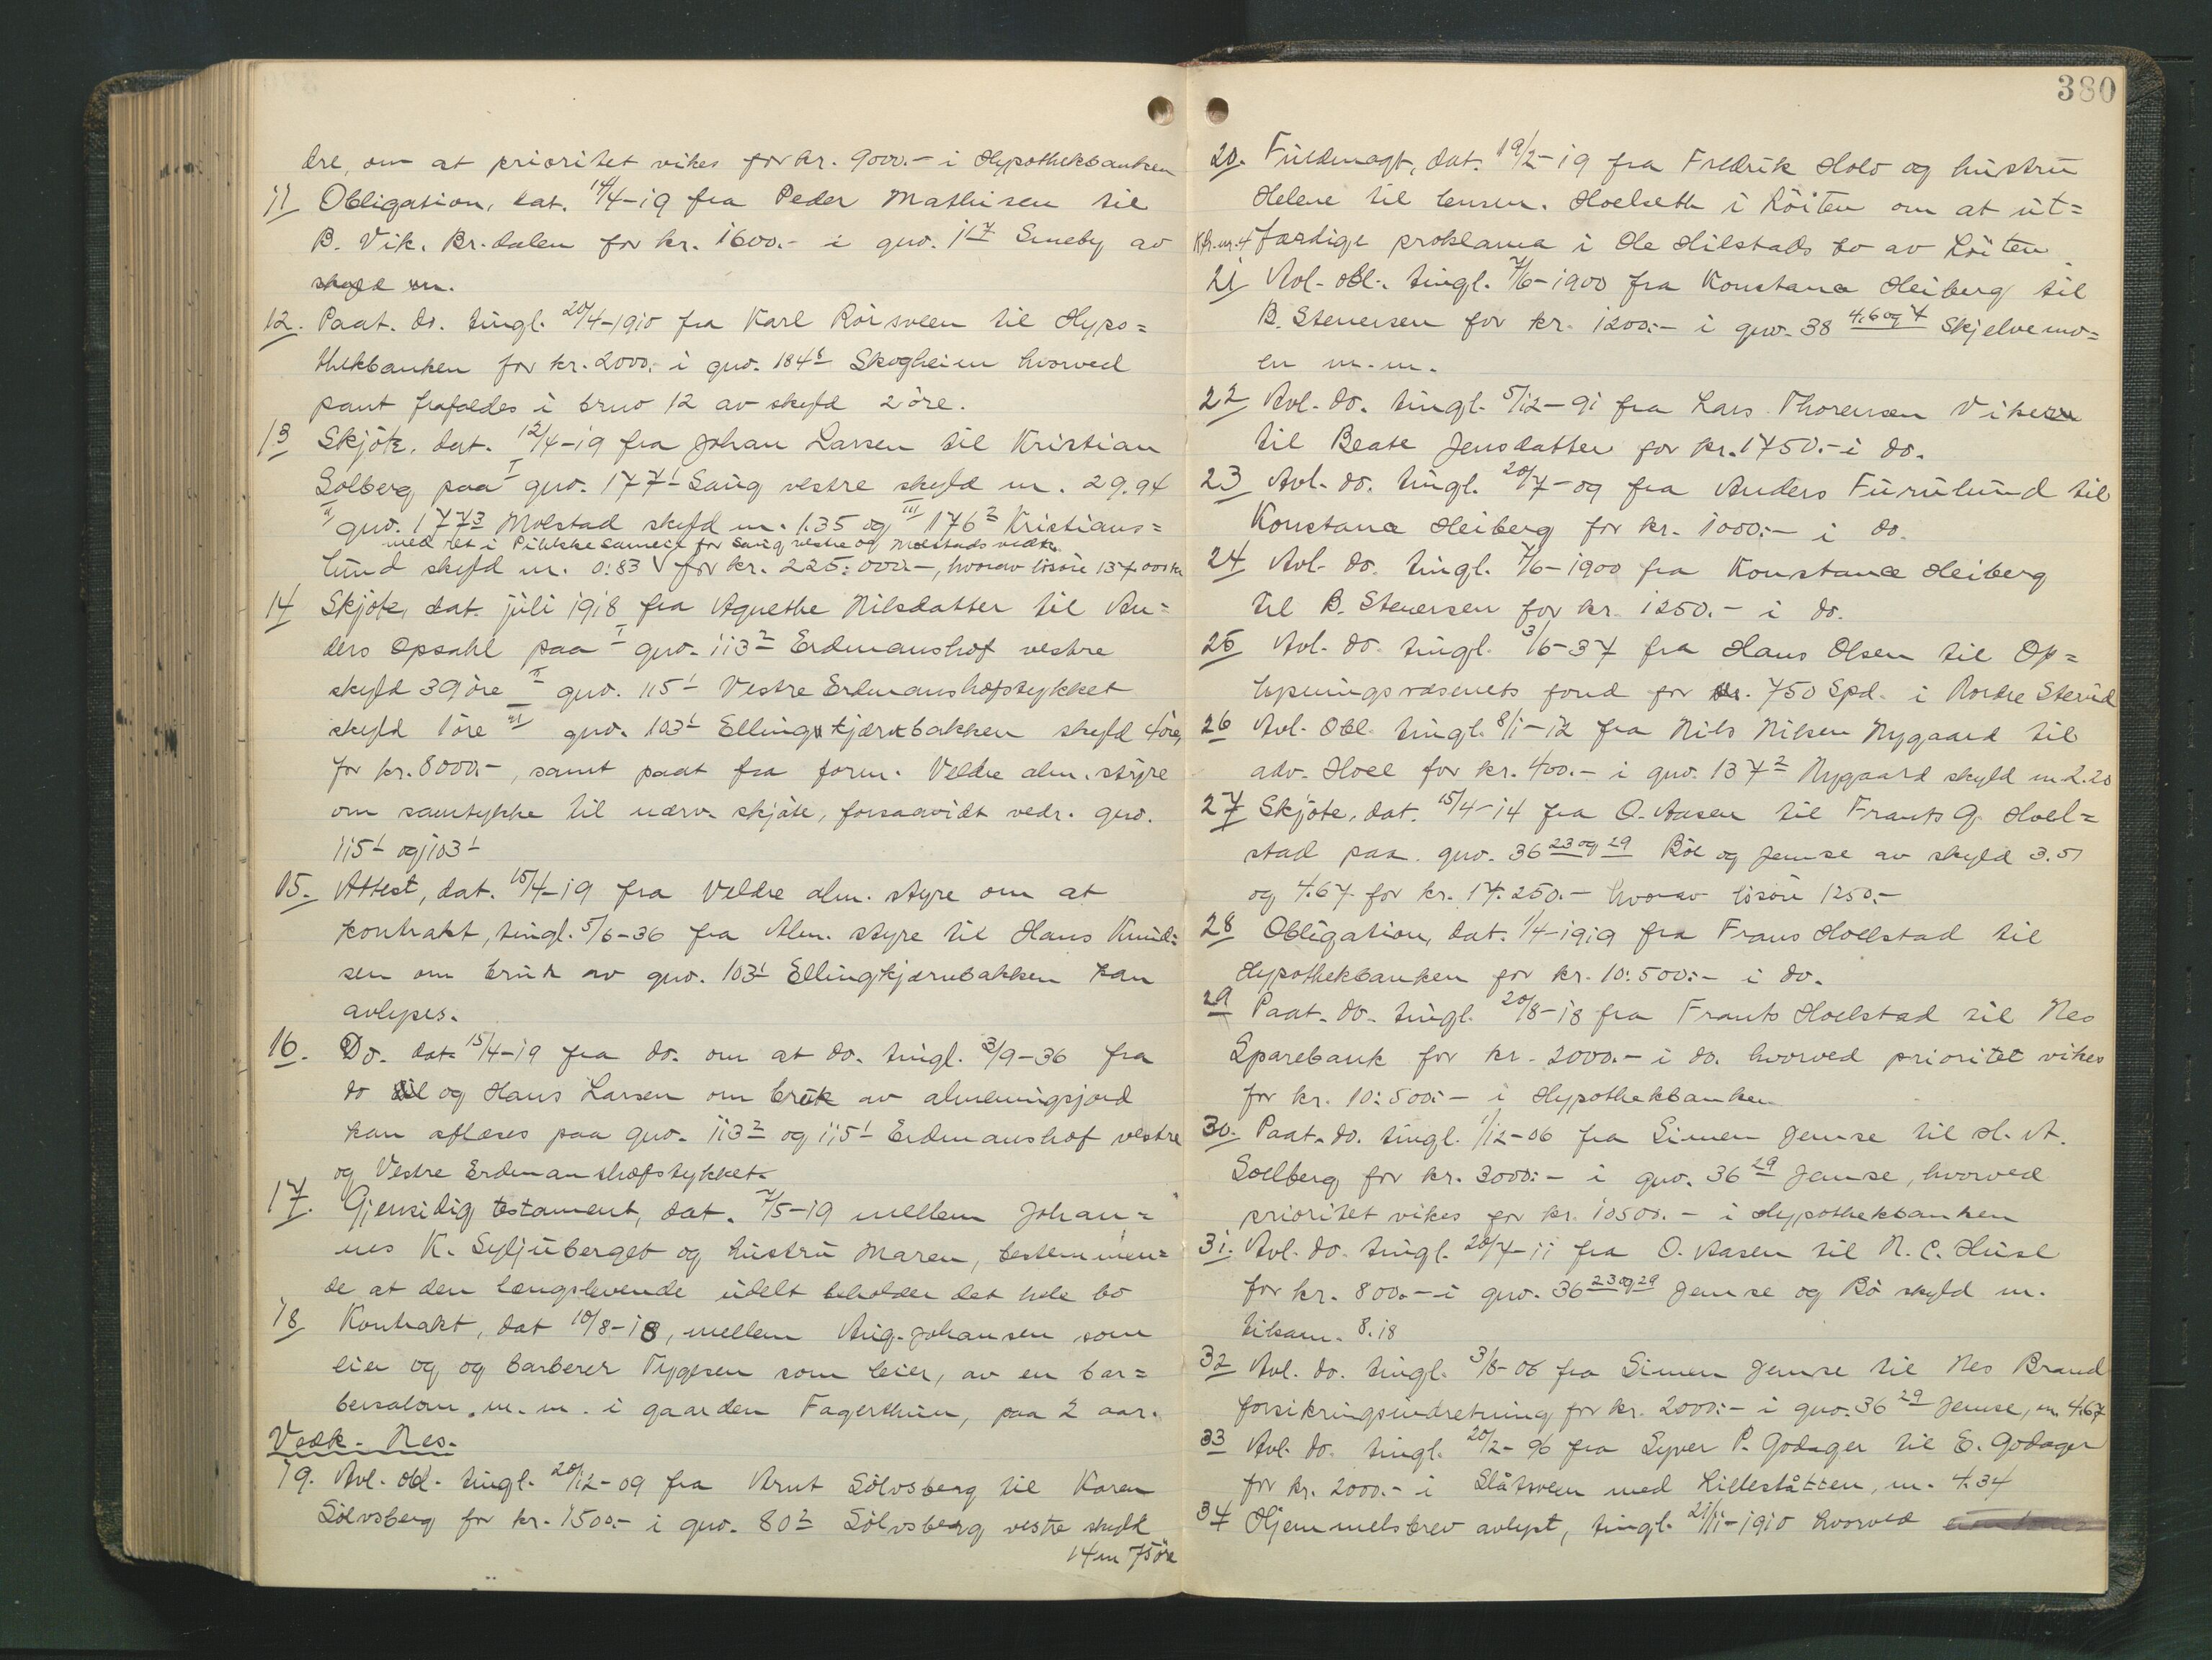 dre, om at prioritet vikes for kr. 9000.- i Hypothekbanken
11 Obligation, dat. 14/4-19 fra Peder Mathisen til
B. Vik. Br.dalen for kr. 1600.- i gno. 1 17 Smeby av
skyld m.
12. Paat. do. tingl. 20/4-1910 fra Karl Röisveen til Hypo=
thekbanken for kr. 2000.- i gno. 184 8 Skogheim hvorved
pant frafaldes i bruo 12 av skyld 2 öre.
13 Skjöte, dat. 12/4-19 fra Johan Larsen til Kristian
Solberg paa I gno. 177 1 Saug vestre skyld m. 29.94
II gno. 177 3 Molstad skyld m. 1.35 og III 176 2 Kristians=
med ret i sameie for Saug vestre og Molstads vedk.
lund skyld m. 0.83 for kr. 225.000.-, hvorav lösöre 137.000 kr
14 Skjöte, dat. juli 1918 fra Agnethe Nilsdatter til An=
ders Opsahl paa I gno. 113 2 Erdmanshof vestre
skyld 39 öre II gno. 115 1 Vestre Erdmanshofstykket
skyld 1 öre III gno. 103 1 Ellingkjærnbakken skyld 4 öre,
for kr. 8000.-, samt paat fra form. Veldre alm. styre
om samtykke til nærv. skjöte, forsaavidt vedr. gno.
115 1 og 103 1
15. Attest, dat. 15/4-19 fra Veldre alm. styre om at
kontrakt, tingl. 5/6-36 fra Alm. styre til Hans Knud=
sen om bruk av gno. 103 1 Ellingkjærnbakken kan
avlyses.
16. Do. dat. 15/4-19 fra do. om at do. tingl. 3/9-36 fra
do til og Hans Larsen om bruk av almenningsjord
kan aflæses paa gno. 113 2 og 115 1 Erdmanshof vestre
og Vestre Erdmanshofstykket.
17. Gjensidig testament, dat. 7/5-19 mellem Johan=
nes K. Syljuberget og hustru Maren, bestemmen=
de at den længstlevende udelt beholder det hele bo
18 Kontrakt, dat 10/8-18, mellem Aug. Johansen som
eier og og barberer Trygesen som leier, av en bar=
bersalon m. m. i gaarden Fagerthun, paa 2 aar.
Vedk. Nes.
19. Avl. obl. tingl. 20/12-09 fra Arnt Sölvsberg til Karen
Sölvsberg for kr. 1500.- i gno. 80 2 Sölvsberg vestre skyld
14 m 75 öre
380
20. Fuldmagt, dat. 19/2-19 fra Fredrik Holo og hustru
Helene til lensm. Hoelseth i Löiten om at ut=
K.B.nr.4 færdige proklama i Ole Hilstads bo av Löiten.
21 Avl. obl. tingl. 7/6-1900 fra Konstance Heiberg til
B. Stenersen for kr. 1200.- i gno. 38 4.6 og 7 Skjelvemo=
en m.m.
22 Avl. do. tingl. 5/12-91 fra Lars Thorensen Viken
til Beate Jensdatter for kr. 1750.- i do.
23 Avl. do. tingl. 20/7-09 fra Anders Furulund til
Konstance Heiberg for kr. 1000.- i do.
24 Avl. do. tingl. 7/6-1900 fra Konstance Heiberg
til B. Stenersen for kr. 1250.- i do.
25 Avl. do. tingl. 3/6-37 fra Hans Olsen til Op=
lysningsvæsenets fond for kr. 750 Spd. i Nordre Sterud
26 Avl. Obl. tingl. 8/1-12 fra Nils Nilsen Nygaard til
adv. Hoel for kr. 400.- i gno. 137 2 Nygaard skyld m 2.20
27 Skjöte, dat. 15/4-14 fra O. Aasen til Frants G. Hoel=
stad paa gno. 36 23 og 29 Röe og Jemse av skyld 3.51
og 4.67 for kr. 17.250.- hvorav lösöre 1250.-
28 Obligation, dat. 1/4-1919 fra Frans Hoelstad til
Hypothekbanken for kr. 10.500.- i do.
29 Paat. do. tingl. 20/8-18 fra Frants Hoelstad til Nes
Sparebank for kr. 2000.- i do. hvorved prioritet vikes
for kr. 10.500.- i Hypothekbanken
30. Paat. do. tingl. 1/12-06 fra Simen Jemse til A.
Soelberg for kr. 3000.- i gno. 36 29 Jemse, hvorved
prioritet vikes for kr. 10500.- i Hypothekbanken
31. Avl. do. tingl. 20/7-11 fra O. Aasen til N. C. Huse
for kr. 800.- i gno. 36 23 og 29 Jemse og Rö skyld m.
tilsam. 8.18
32 Avl. do. tingl. 3/8-06 fra Simen Jemse til Nes Brand
forsikringsindretning for kr. 2000.- i gno. 36 29 Jemse, m. 4.67
33 Avl. do. tingl. 20/2-96 fra Syver P. Godager til E. Godager
for kr. 2000.- i Slåtsveen med Lilleslåtten, m. 4.34
34 Hjemmelsbrev avlyst, tingl. 21/11-1910 hvorved